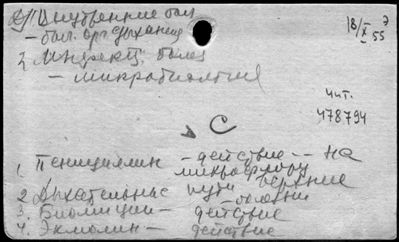 1) Внутренние бол
- бол. орг. дыхания
2) Инфекц. болез
- микробиология
18/X 55
Э
чит.
478794
С
1. Пенициллин - действие -- на
микрофлору
2 Дыхательные пути верхние
- болезни
3. Биомицин - действие
4. Экмолин - действие